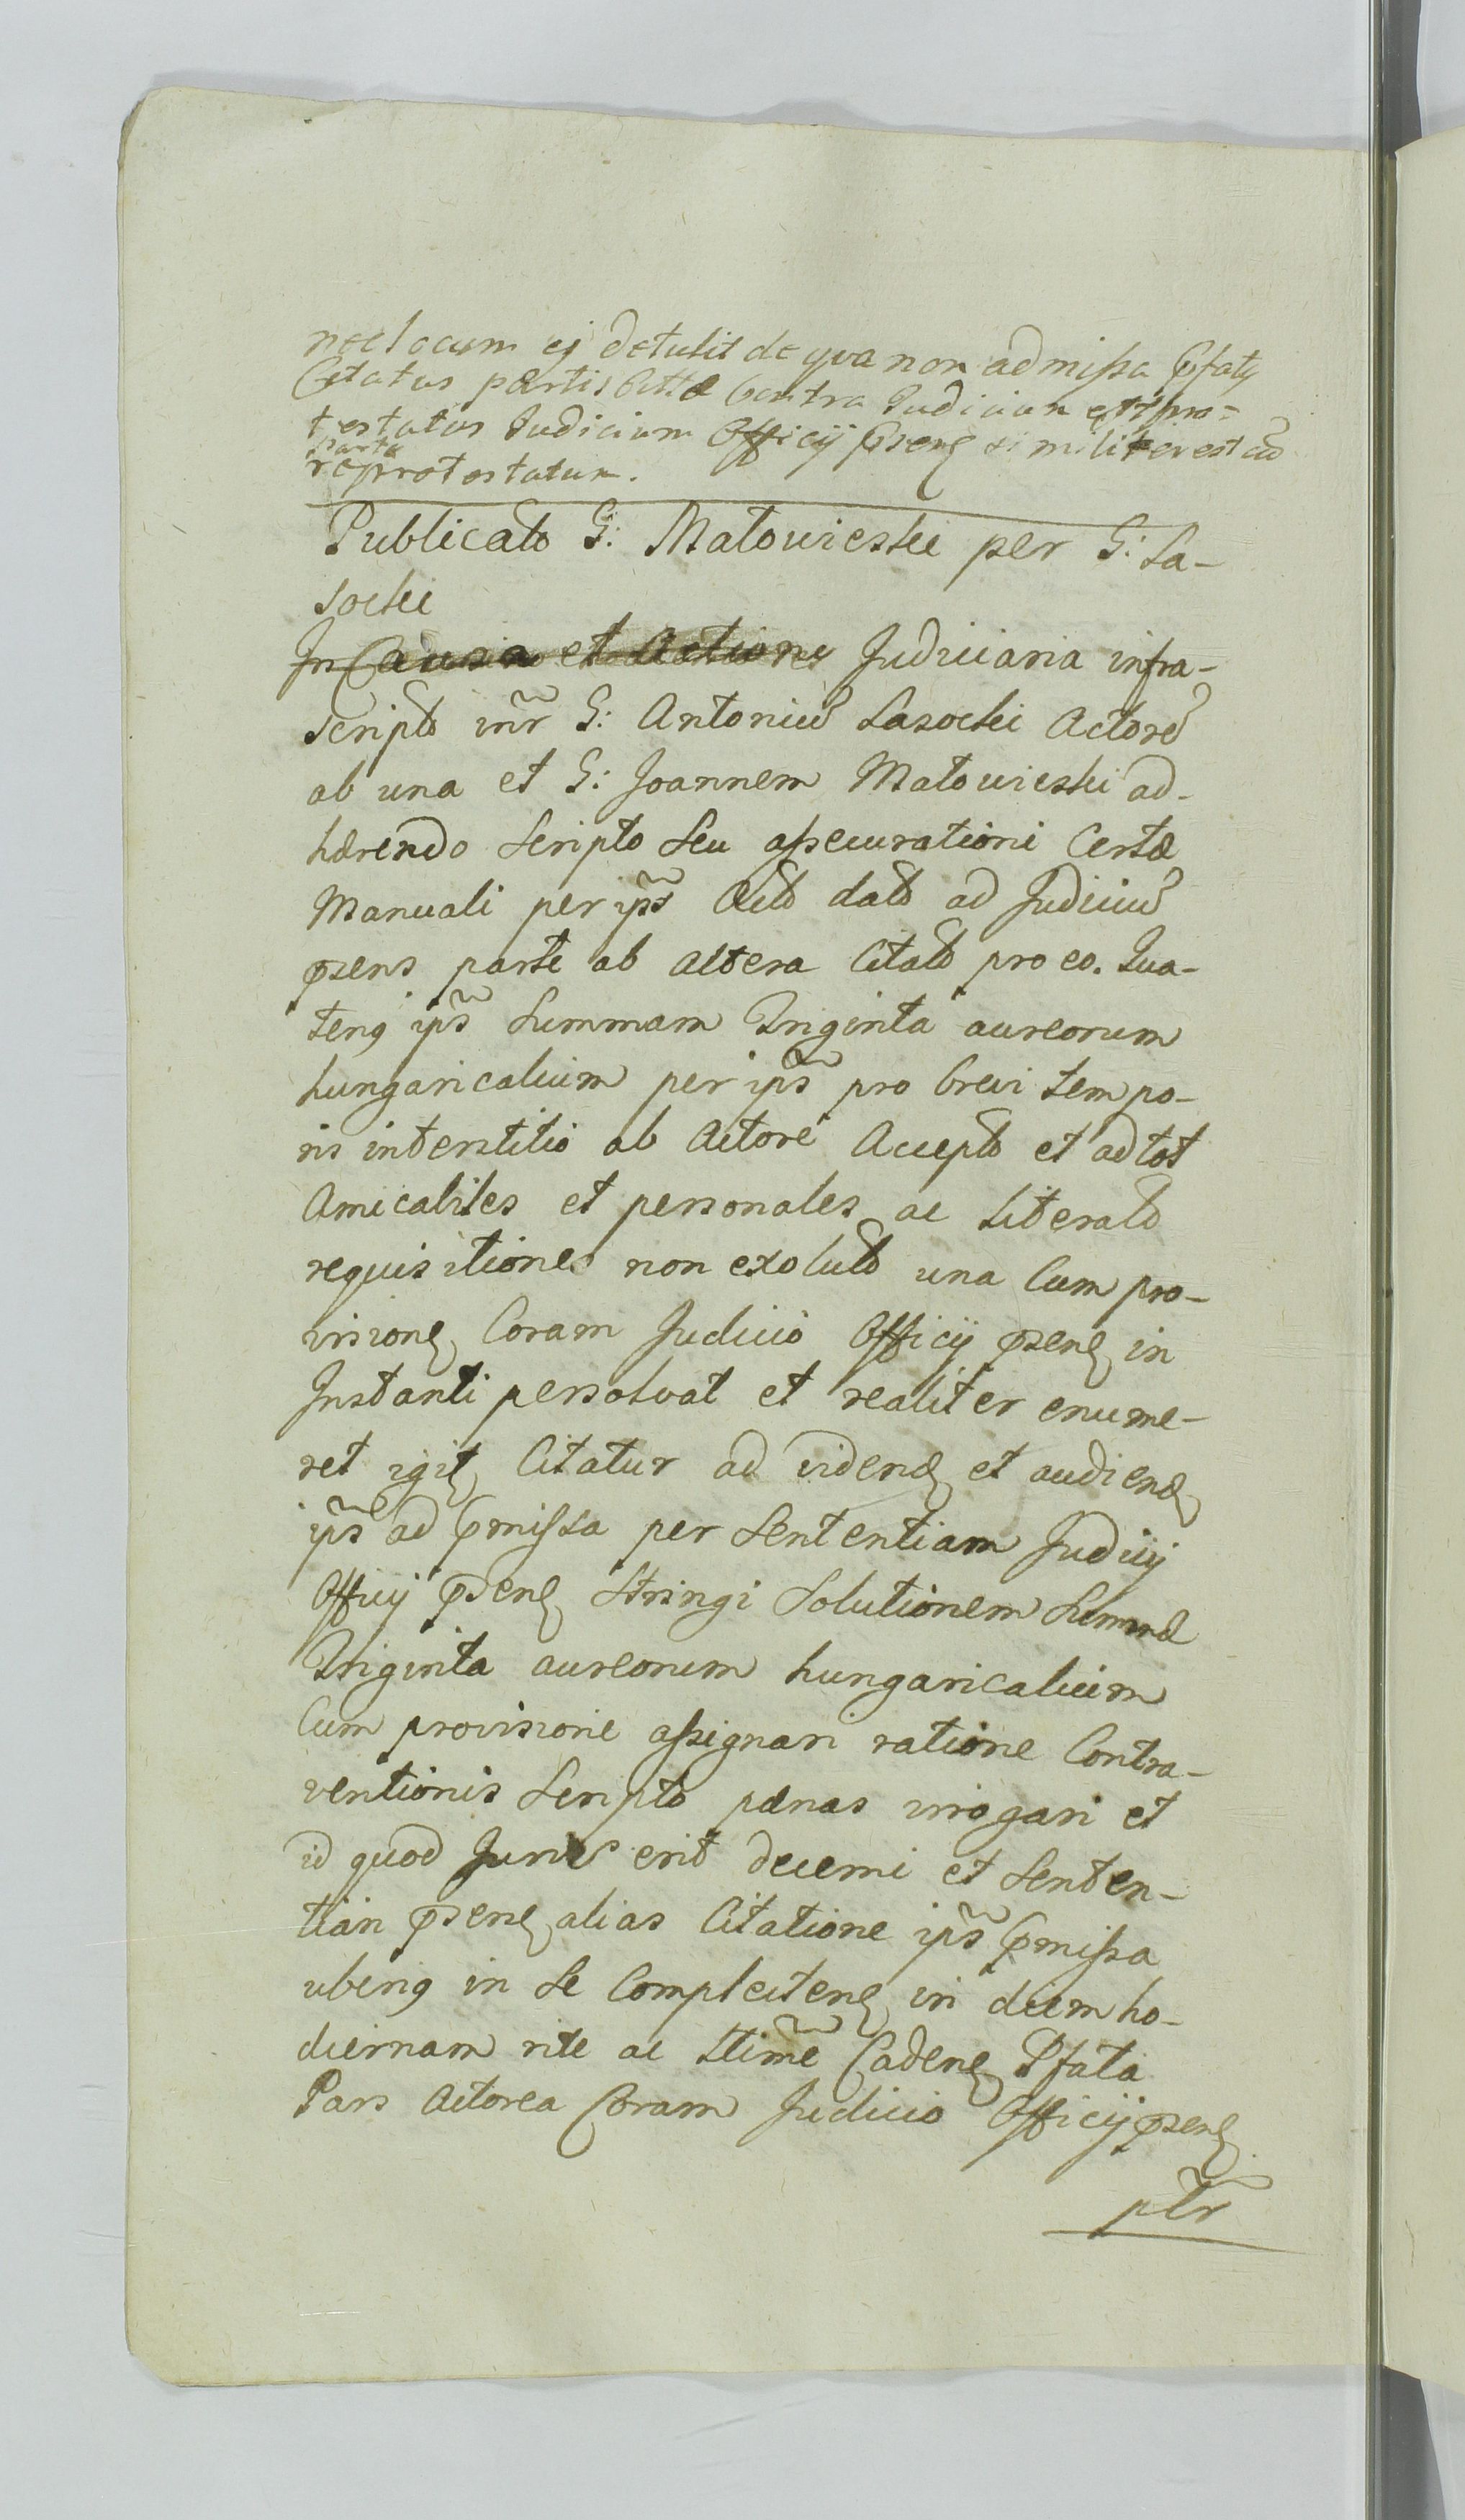 nec locum ej detulit de qua non admissa Pfatq
Citatus partis Citta Contra Judicium est pro=
testatus Judicium Officij psenę similiter est cū
parte
reprotestatum.
Publicato G: Małowieski per G: La-
socki
In Causa et Actione Judiciaria infra-
scripto inr̃ G: Antoniū Lasocki Actorē
ab una et G: Joannem Małowieski ad-
hærendo Scripto Seu assecurationi Certæ
Manuali per ips̃ dato ad Judiciū
psens parte ab altera Citato pro eo. Qua-
tenq ips̃ Summam Triginta aureorum
hungaricalium per ips̃ pro brevi tempo-
ris interstitio ab Actore Accepto et ad tot
Amicabiles et personales ac literato
requisitiones non exoluto una Cum pro-
visionę Coram Judicio Officij psenę in
Instanti persolvat et realiter enume-
ret igitę Citatur ad videndę et audiendę
ips̃ ad pmissa per Sententiam Judicij
Officij psenę Stringi Solutionem Summæ
Triginta aureorum hungaricalium
Cum provisione assignari ratione Contra-
ventionis Scripto pænas irrogari et
id quod Juris erit decerni et Senten-
tian psenę alias Citatione ips̃ pmissa
uberiq in Se Complectenę in diem ho-
diernam rite ac ltime̅ Cadenę Pfata
Pars Actorea Coram Judicio Officij psenę
ptr̃